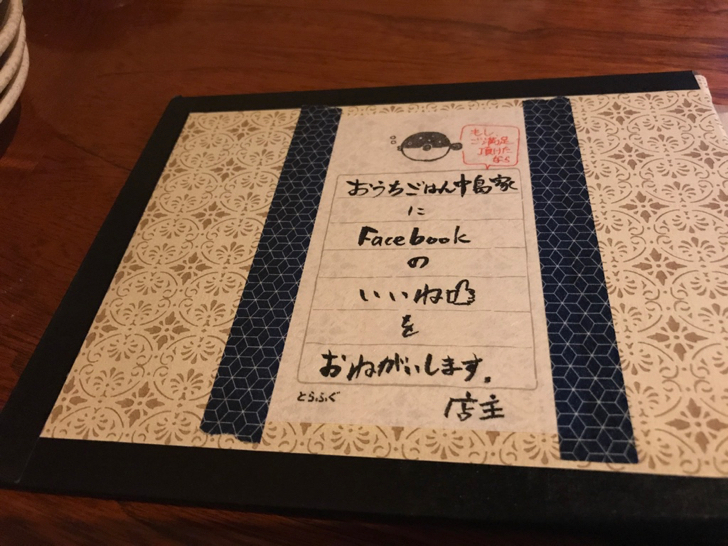 もし
ご満足
頂けた
なら
おうちごはん中島家
に
Facebook
の
いいね
を
おねがいします。
とらふぐ
店主